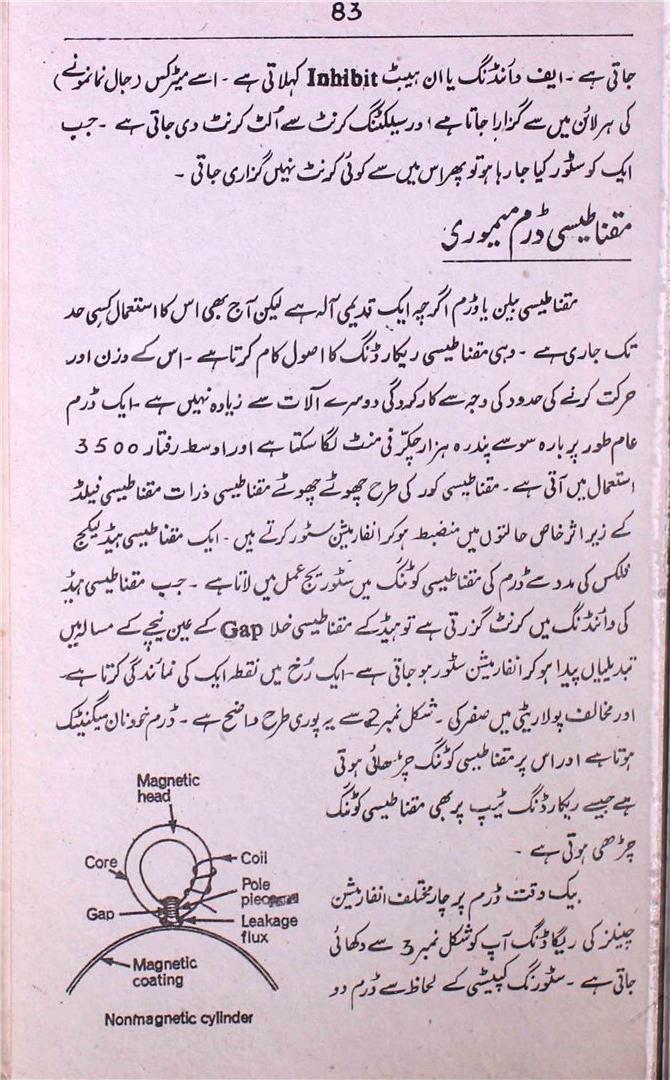 83
جاتی ہے ۔ ایف وائنڈنگ یا ان ہیبٹ Inhibit کہلاتی ہے ۔ اسے میٹرکس (جال نمانمونے)
کی ہر لائن میں سے گزارا جاتا ہے اور سیلیکٹنگ کرنٹ سے اُلٹ کرنٹ دی جاتی ہے ۔ جب
ایک کو سٹور کیا جا رہا ہو تو پھر اس میں سے کوئی کرنٹ نہیں گزاری جاتی ۔
مقناطیسی ڈرم میموری
مقناطیسی بیلن یا ڈرم اگرچہ ایک قدیمی آلہ ہے لیکن آج بھی اس کا استعمال کسی حد
تک جاری ہے ۔ وہی مقناطیسی ریکارڈنگ کا اصول کام کرتا ہے ۔ اس کے وزن اور
حرکت کرنے کی حدود کی وجہ سے کارکردگی دوسرے آلات سے زیادہ نہیں ہے ۔ ایک ڈرم
عام طور پر بارہ سو سے پندرہ ہزار چکّر فی منٹ لگا سکتا ہے اور اوسط رفتار 3500
استعمال میں آتی ہے ۔ مقناطیسی کور کی طرح چھوٹے چھوٹے مقناطیسی ذرات مقناطیسی فیلڈ
کے زیر اثر خاص حالتوں میں منضبط ہو کر انفارمیشن سٹور کرتے ہیں ۔ ایک مقناطیسی ہیڈ لیکیج
فلکس کی مدد سے ڈرم کی مقناطیسی کوٹنگ میں سٹوریج عمل میں لاتا ہے ۔ جب مقناطیسی ہیڈ
کی وائنڈنگ میں کرنٹ گزرتی ہے تو ہیڈ کے مقناطیسی خلا Gap کے عین نیچے کے مسالہ میں
تبدیلیاں پیدا ہو کر انفارمیشن سٹور ہو جاتی ہے ۔ ایک رُخ میں نقطہ ایک کی نمائندگی کرتا ہے
اور مخالف پولاریٹی میں صفر کی ۔ شکل نمبر 2 سے یہ پوری طرح واضح ہے ۔ ڈرم خود نان میگنیٹک
ہوتا ہے اور اس پر مقناطیسی کوٹنگ چڑھائی ہوتی
ہے جیسے ریکارڈنگ ٹیپ پر بھی مقناطیسی کوٹنگ
چڑھی ہوتی ہے ۔
بیک وقت ڈرم پر چار مختلف انفارمیشن
چینلز کی ریکارڈنگ آپ کو شکل نمبر 3 سے دکھائی
جاتی ہے ۔ سٹورنگ کپیسٹی کے لحاظ سے ڈرم دو
Magnetic
head
Core
Coil
Pole
Gap
Leakage
flux
Magnetic
coating
Nonmagnetic cylinder